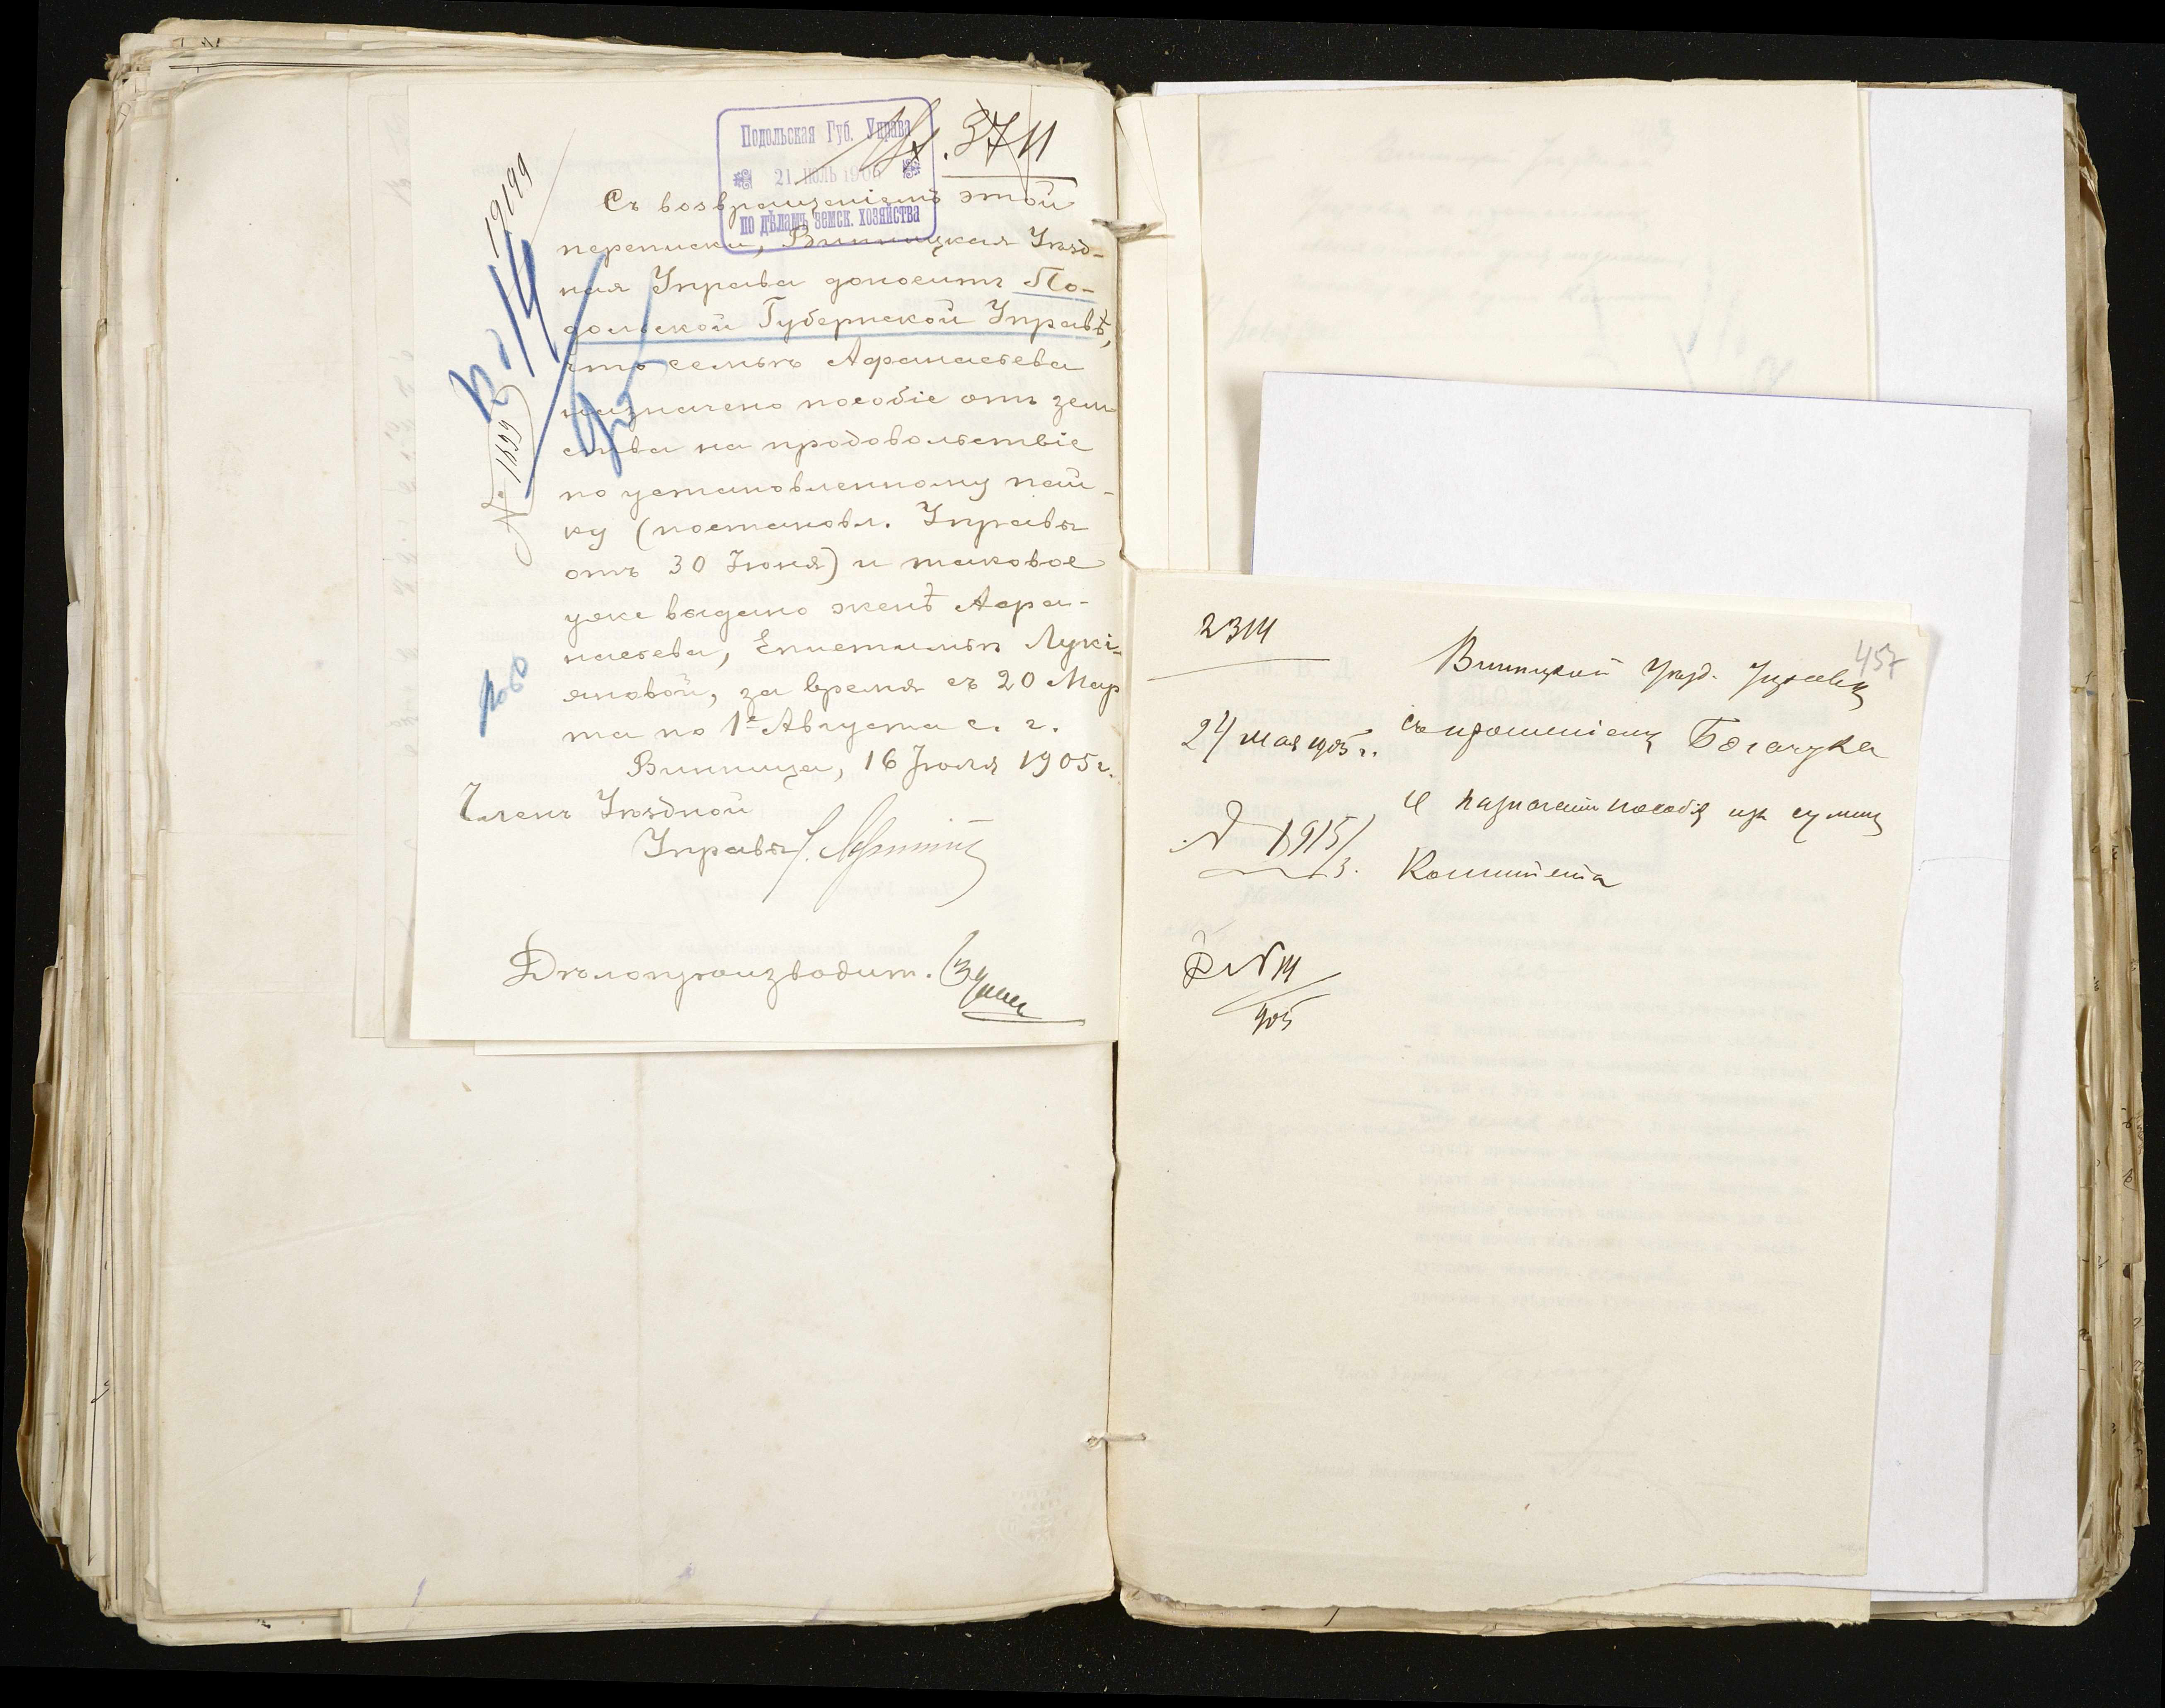 Подольская Губ. Управа
21 июль 1905
по дѣламъ земск. хозяйства
3711
19199
№ 1899
Съ возвращеніемъ этой
переписки, Винницкая Уѣзд-
ная Управа доноситъ По-
дольской Губернской Управѣ,
что семьѣ Афанасьева
назначено пособіе отъ зем
ства на продовольствіе
по установленному пай-
ку (постановл. Управы
отъ 30 Іюня) и таковое
уже выдано женѣ Афа-
насьева, Епистиміи Лукі-
яновой, за время съ 20 Мар
та по 1е Августа с. г.
Винница, 16 Іюля 1905 г.
Членъ Уѣздной
Управы
Дѣлопроизводит.
457
Винницкой Уѣзд. Управы
съ прошеніемъ Богачука
о назначеніи пособія изъ суммъ
Комитета
24 мая 1905 г.
№ 1915/3.
905